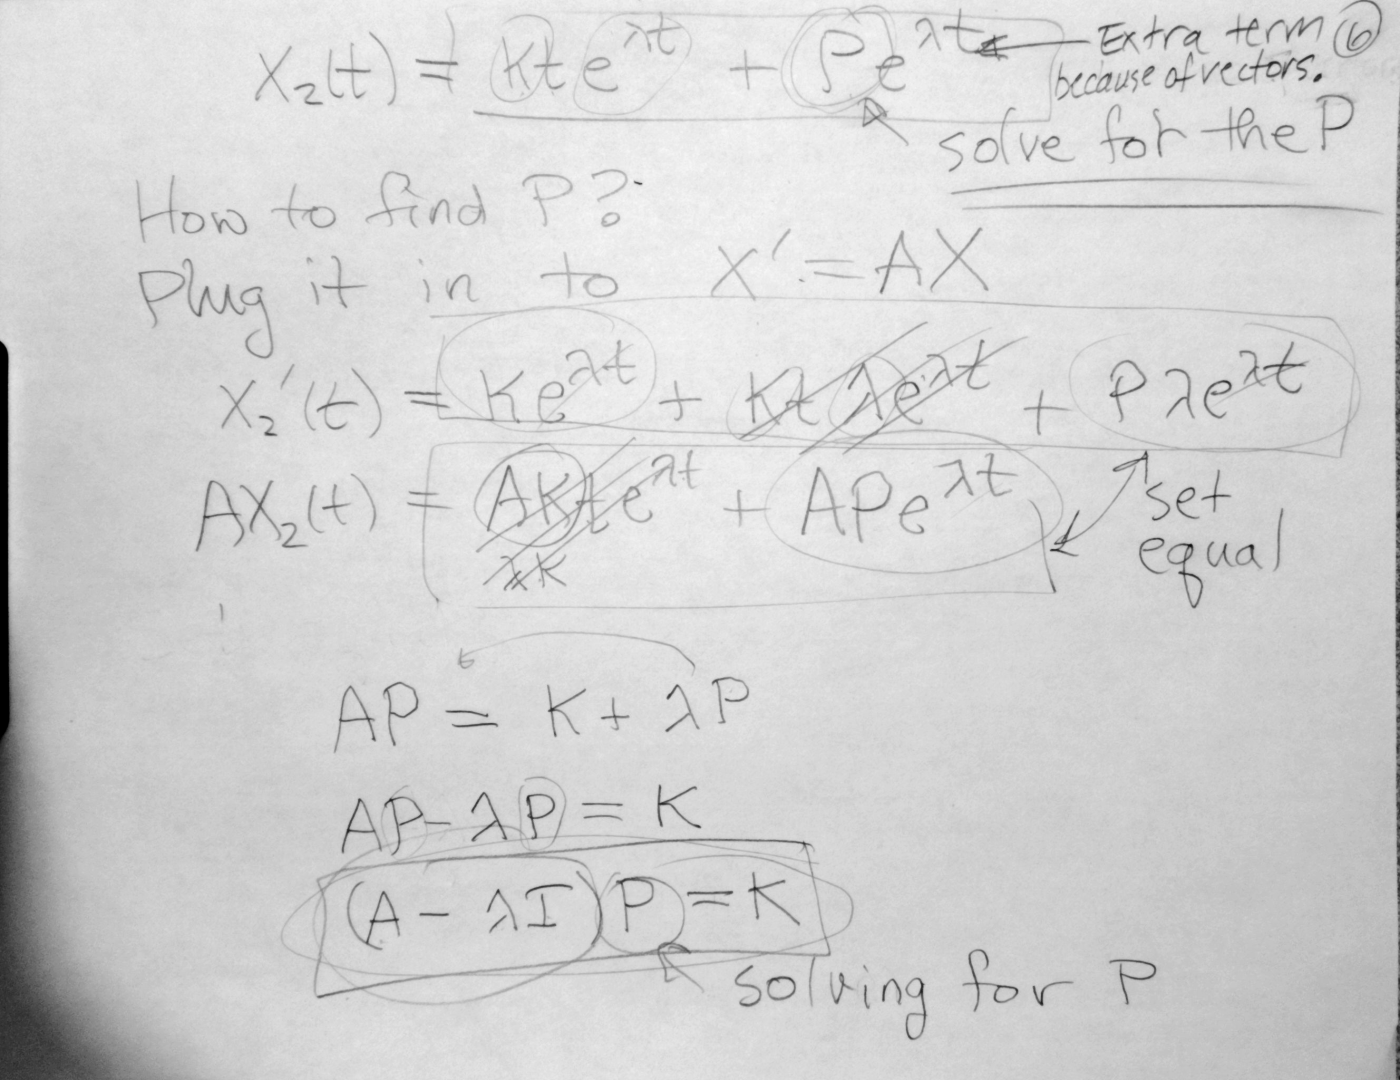 X₂(t) = Kte^λt + Pe^λt ← Extra term ⑥
because of vectors.
solve for the P
How to find P?
Plug it in to X' = AX
X₂'(t) = Ke^λt + Ktλe^λt + Pλe^λt
AX₂(t) = AKte^λt + APe^λt
λK
set
equal
AP = K + λP
AP - λP = K
(A - λI)P = K
solving for P